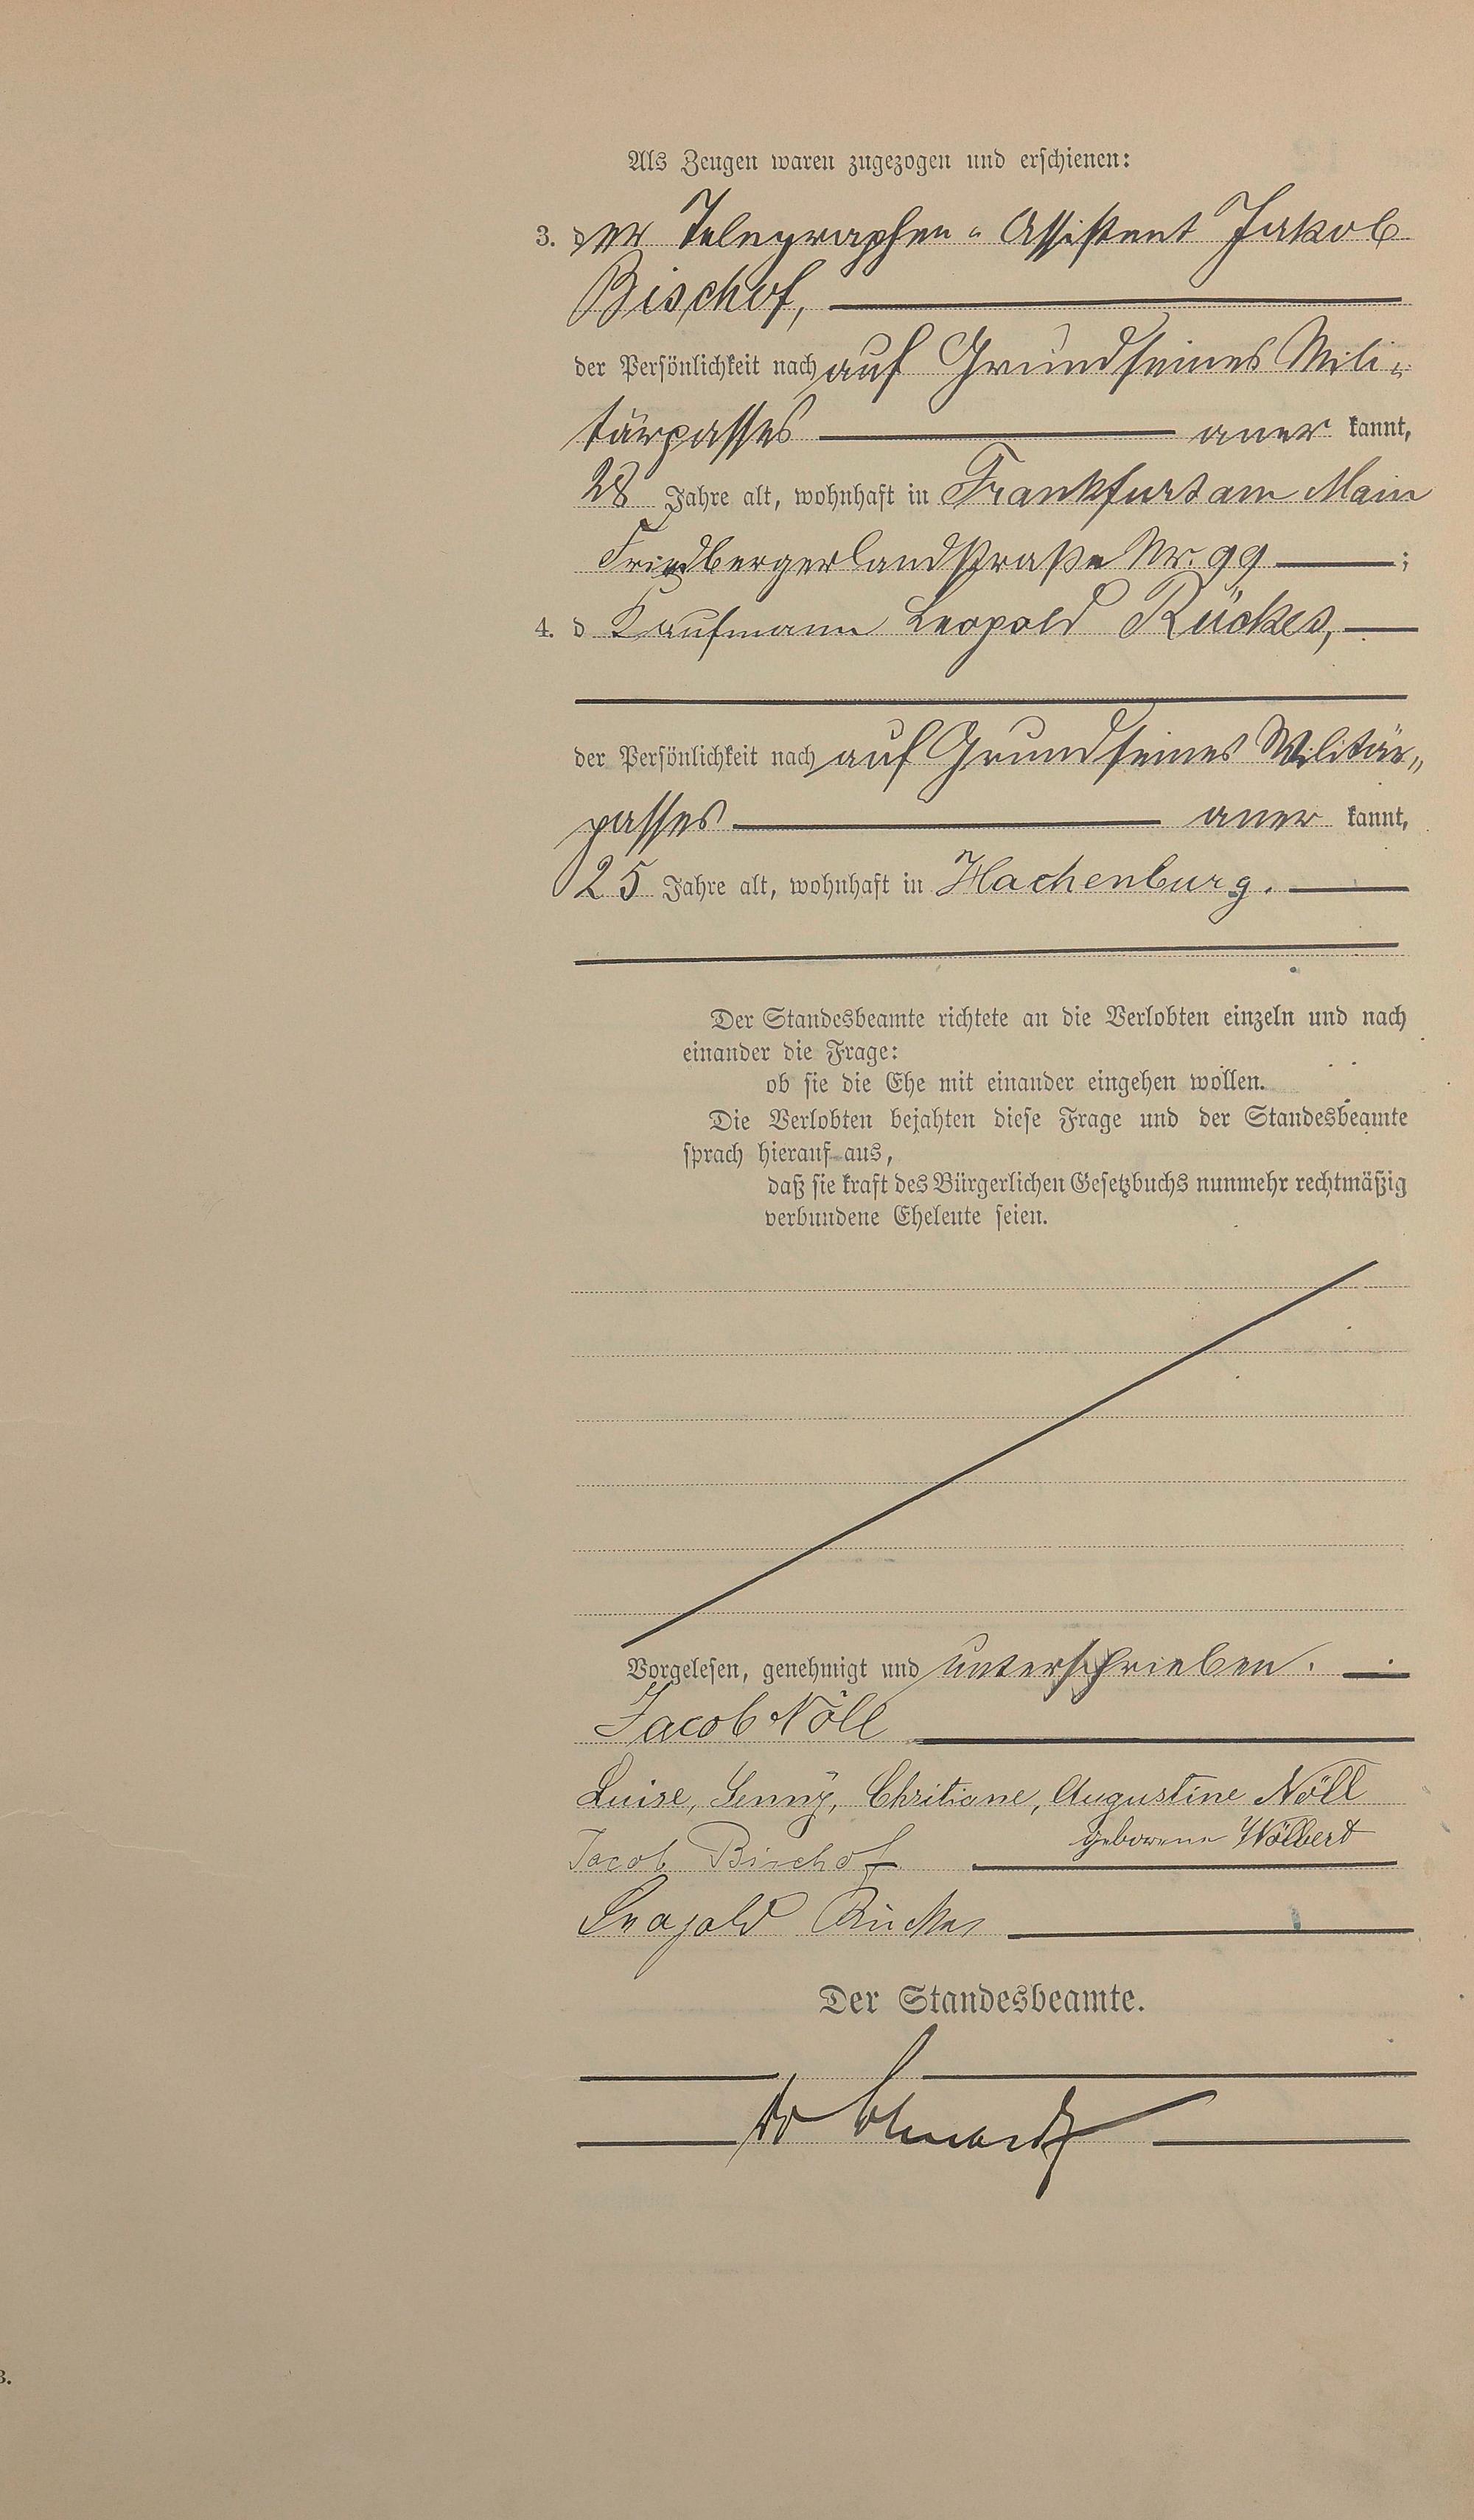 Als Zeugen waren zugezogen und erschienen:
3. der Telegraphen-Assistent Jakob
Bischof,
der Persönlichkeit nach auf Grund seines Mili-
tärpasses aner kannt,
28 Jahre alt, wohnhaft in Frankfurt am Main
Friedbergerlandstraße Nr. 99 ;
4. d Kaufmann Leopold Rückes,
der Persönlichkeit nach auf Grund seines Militär-
passes aner kannt,
25 Jahre alt, wohnhaft in Hachenburg.
Der Standesbeamte richtete an die Verlobten einzeln und nach
einander die Frage:
ob sie die Ehe mit einander eingehen wollen.
Die Verlobten bejahten diese Frage und der Standesbeamte
sprach hierauf aus,
daß sie kraft des Bürgerlichen Gesetzbuchs nunmehr rechtmäßig
verbundene Eheleute seien.
Vorgelesen, genehmigt und unterschrieben.
Jacob Nöll
Luise, Jenny, Chritiane, Augustine Nöll
geborene Wölbert
Jacob Bischof
Leopold Rückes
Der Standesbeamte.
3.